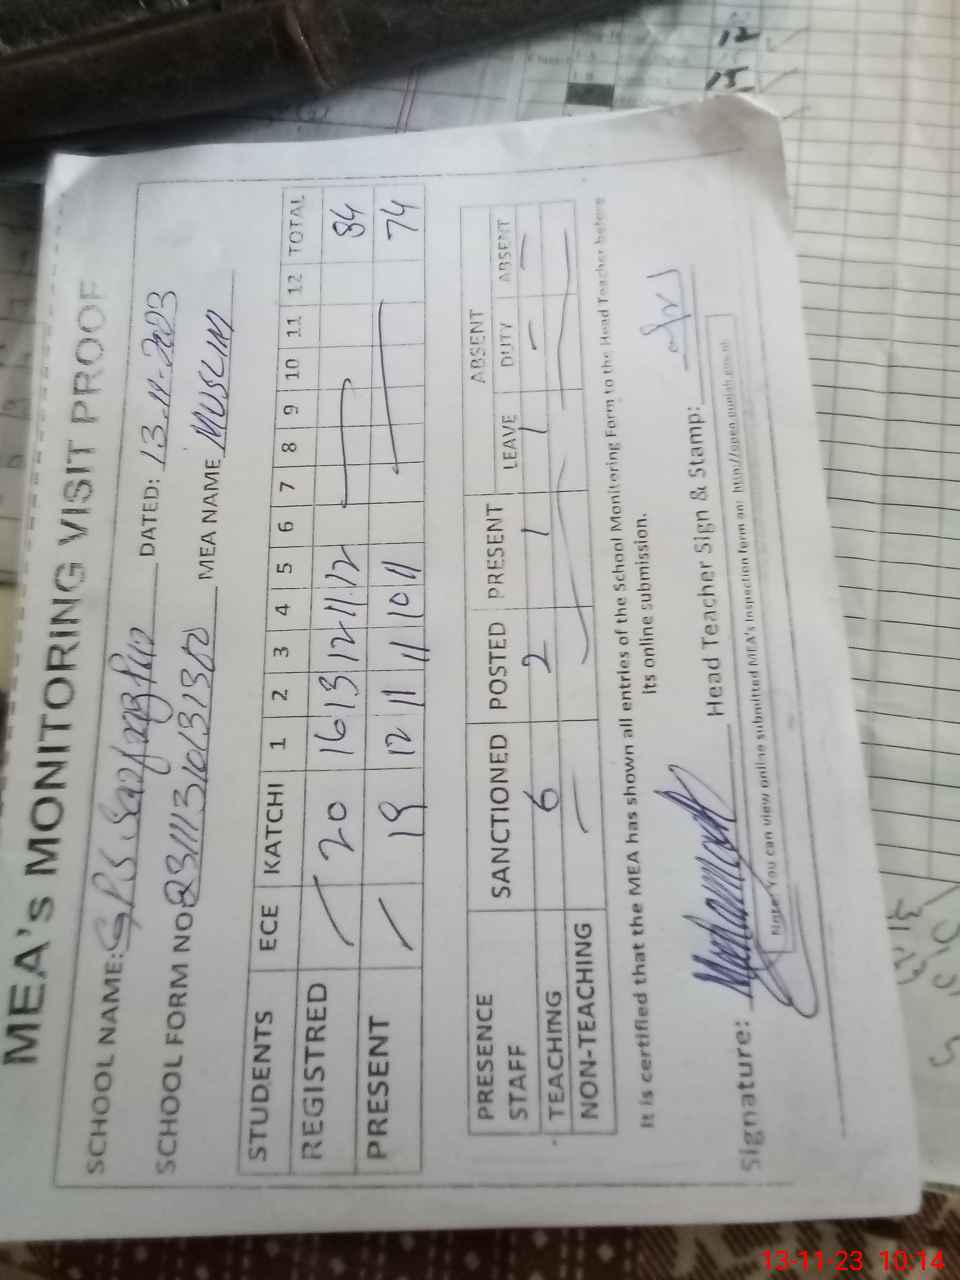 MEA's MONITORING VISIT PROOF
SCHOOL NAME: GPS DATED: 13-11-2023
SCHOOL FORM NO MEA NAME MUSLIM
STUDENTS ECE KATCHI 1 2 3 4 5 6 7 8 9 10 11 12 TOTAL
REGISTRED 20 16 13 12 11 12 84
PRESENT 19 12 11 11 10 11 74
PRESENCE SANCTIONED POSTED PRESENT ABSENT
STAFF LEAVE DUTY ABSENT
TEACHING 6 2 1 1 —
NON-TEACHING
It is certified that the MEA has shown all entries of the School Monitoring Form to the Head Teacher before
its online submission.
Signature: Head Teacher Sign & Stamp:
Note: You can view online submitted MEA's Inspection form on: http://open.punjab.gov.pk
13-11-23 10:14